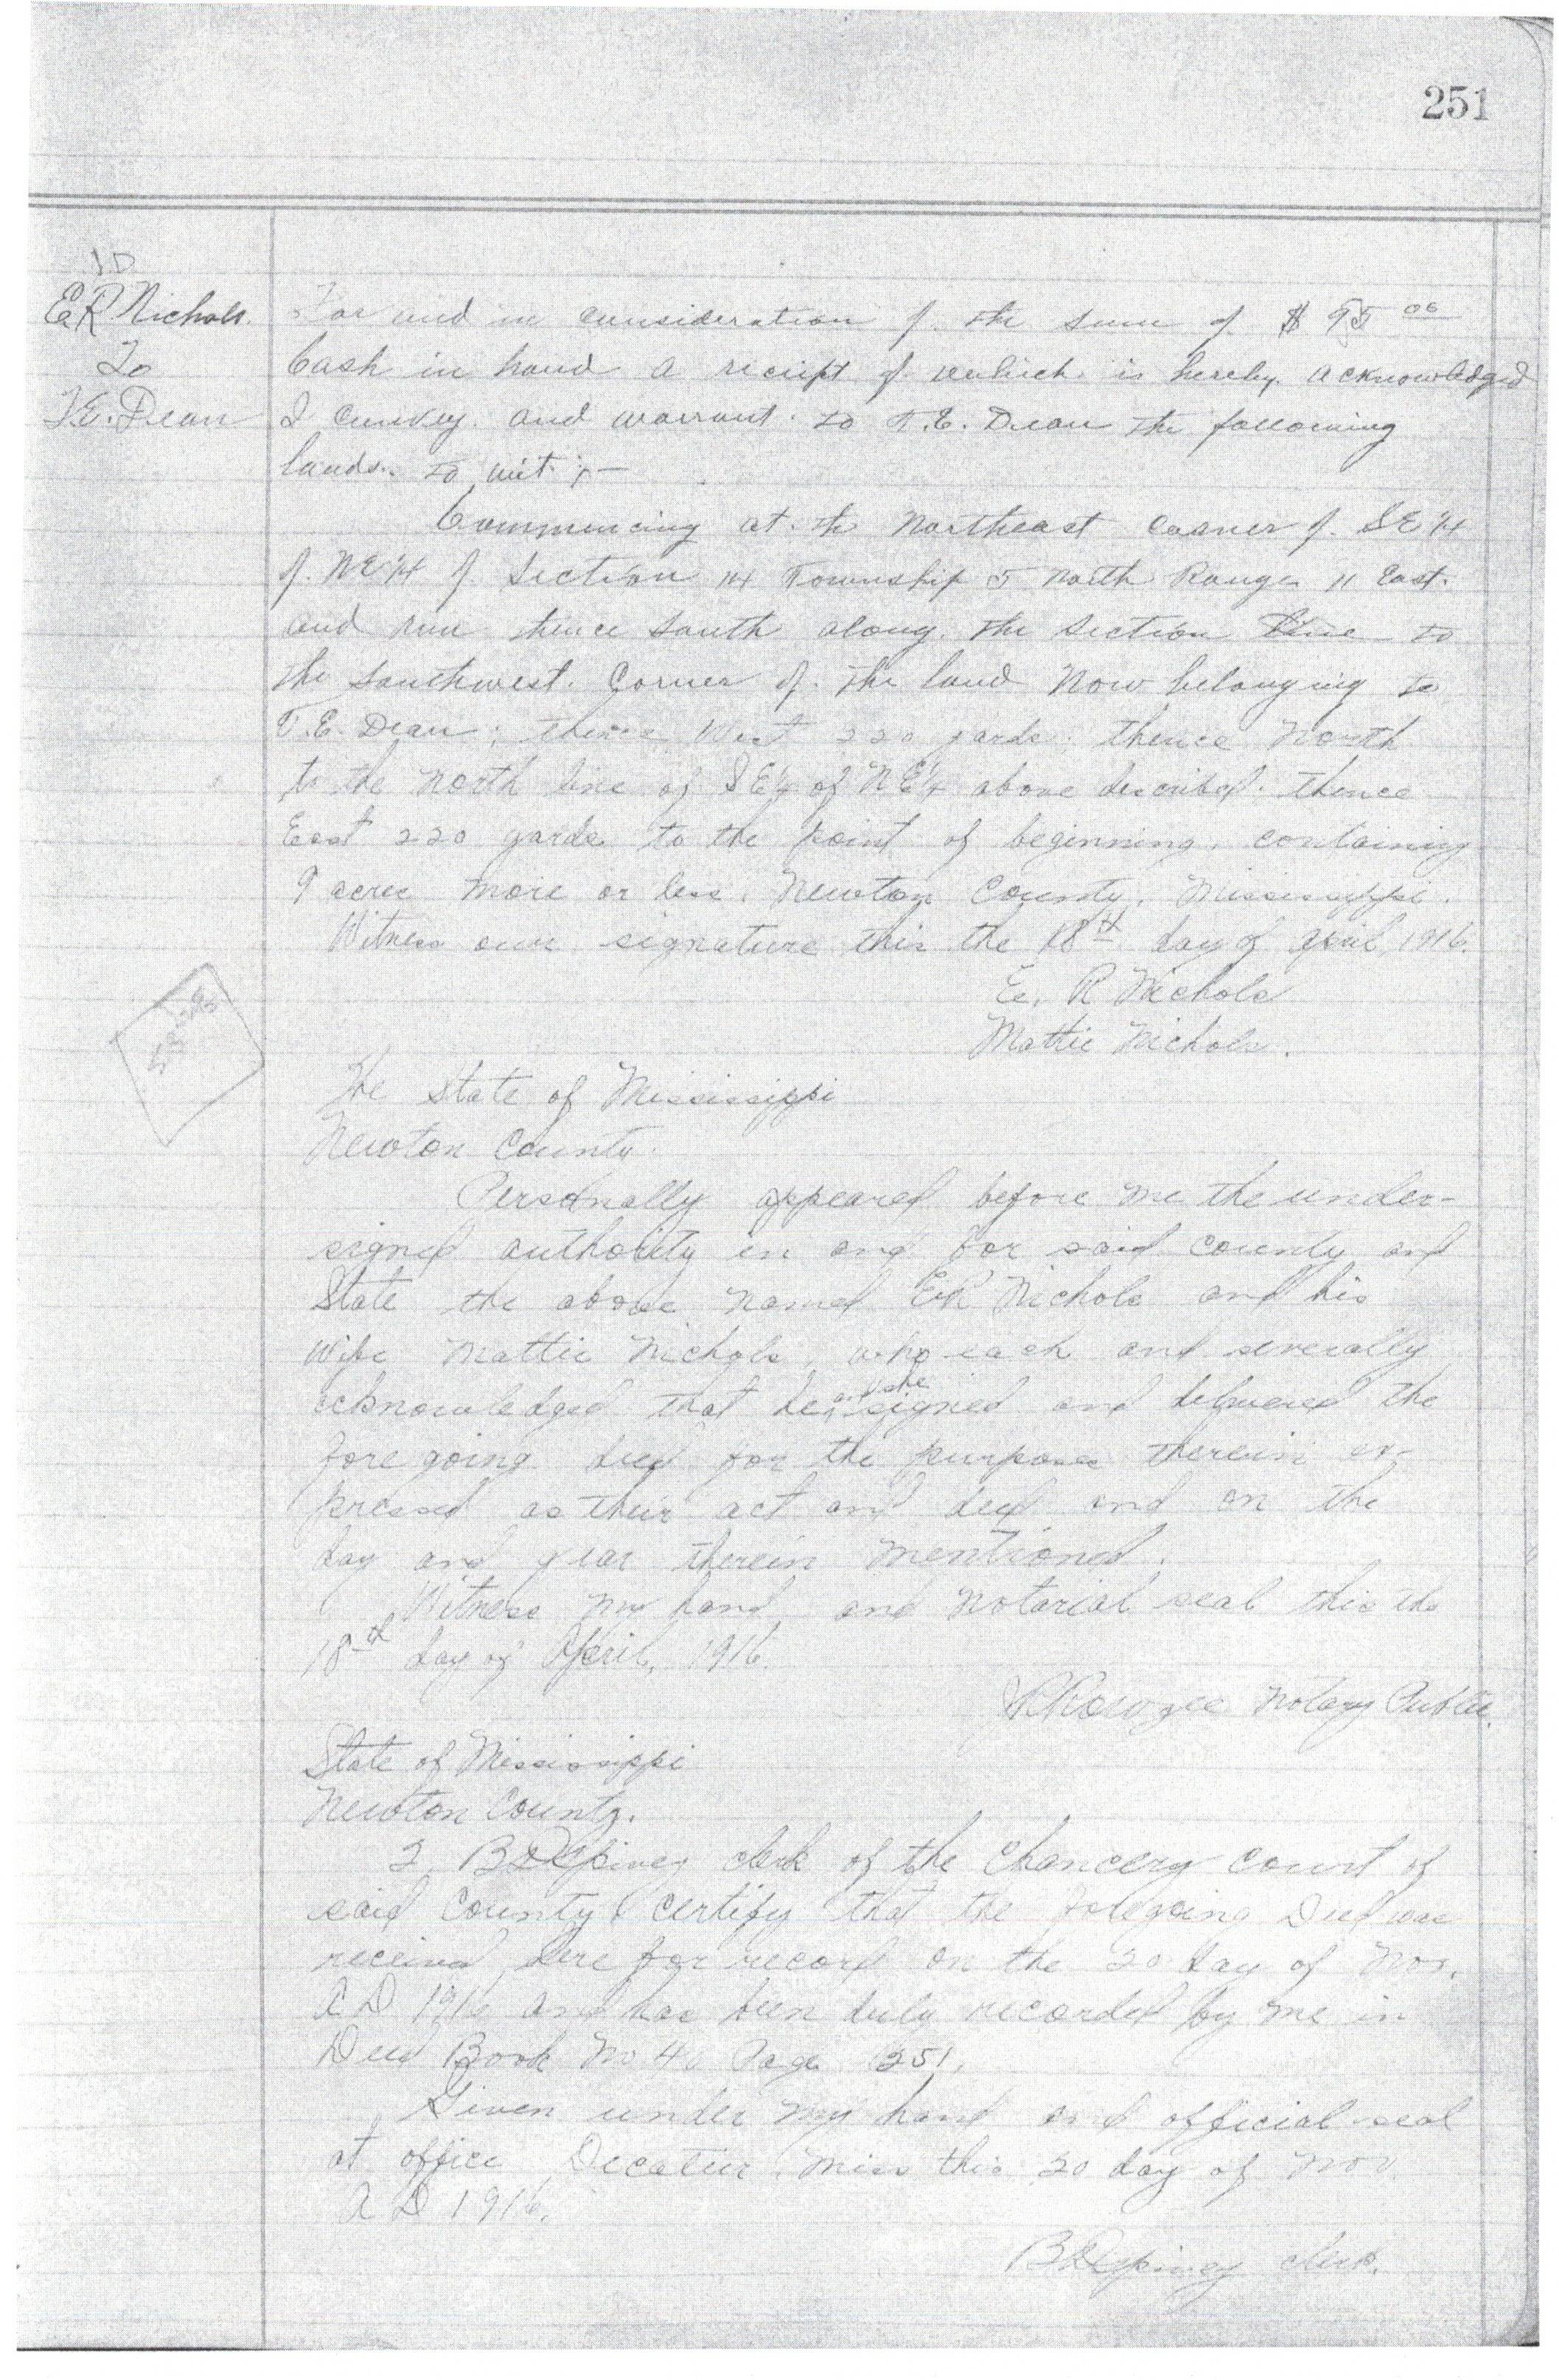 251
E R Nichols.
To
T.E. Dean
For and in consideration of the sum of $ 95 00
Cash in hand a reciept of which is hereby acknowledged
I convey and warrant to T.E. Dean the following
lands. to wit :-
Commencing at the Northeast Corner of SE 1/4
of NE 1/4 of Section 14 Township 5 North Range 11 East.
and run thence South along the section line to
the southwest Corner of the land Now belonging to
T.E. Dean; thence West 220 yards; thence North
to the north line of SE 1/4 of NE 1/4 above described. thence
East 220 yards to the point of beginning, containing
9 acres more or less, Newton County, Mississippi.
Witness our signature this the 18th day of April, 1916.
E. R Nichols
Mattie Nichols.
The State of Mississippi
Newton County.
Personally appeared before me the under-
signed authority in and for said county and
State the above named E R Nichols and his
wife Mattie Nichols, who each and severally
acknowledged that he and she signed and delivered the
foregoing deed for the purposes therein ex-
pressed as their act and deed and on the
day and year therein mentioned.
Witness my hand and notarial seal this the
18th day of April, 1916.
Notary Public.
State of Mississippi
Newton County.
I, clerk of the Chancery Court of
said County certify that the foregoing Deed was
received here for record on the 20 day of Nov.
A D 1916 and has been duly recorded by me in
Deed Book No 40 Page 251.
Given under my hand and official seal
at office Decatur, Miss this 20 day of Nov.
A D 1916.
clerk.